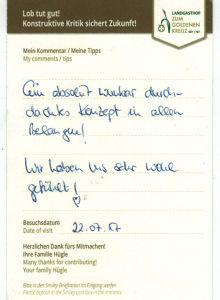 Lob tut gut!
Konstruktive Kritik sichert Zukunft!
LANDGASTHOF
ZUM
GOLDENEN
KREUZ
Mein Kommentar / Meine Tipps
My comments / tips
Ein absolut wunbar durch-
dachtes Konzept in allen
Belangen!
Wir haben uns sehr wohl
gefühlt!
Besuchsdatum
Date of visit
22.07.17
Herzlichen Dank fürs Mitmachen!
Ihre Familie Hügle
Many thanks for contributing!
Your family Hügle
Bitte in den Smiley-Briefkasten im Eingang werfen
Please deposit in the Smiley post box in the entrance